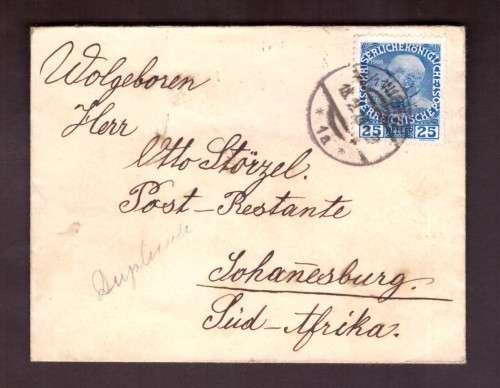 Wolgeboren
Herr
Otto Störzel.
Post-Restante
Johannesburg.
Süd-Afrika.
KAISERLICHE KÖNIGLICHE ÖSTERREICHISCHE POST
25 25
1a